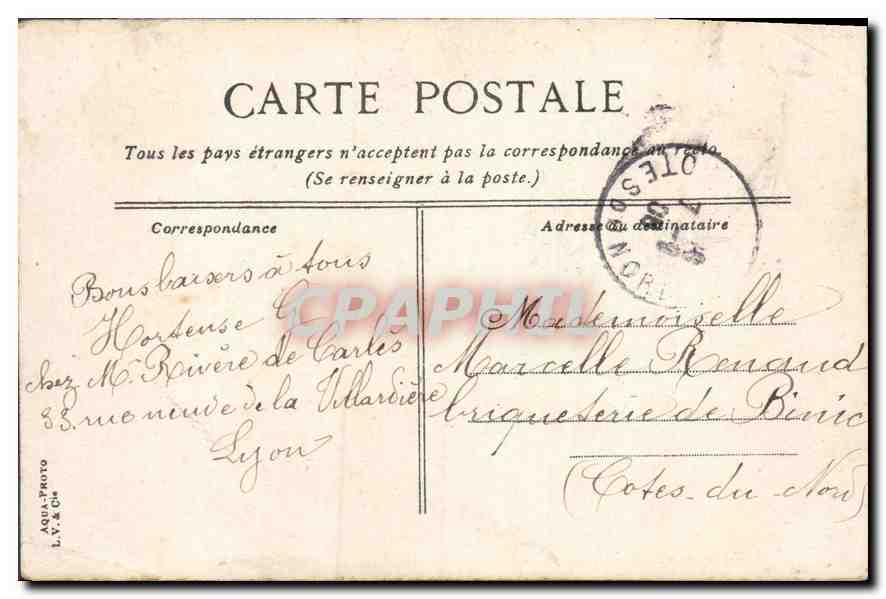 CARTE POSTALE
Tous les pays étrangers n'acceptent pas la correspondance au recto
(Se renseigner à la poste.)
Correspondance
Bons baisers à tous
Hortense C
chez Mr Rivère de Carlès
33 rue neuve de la Villardière
Lyon
AQUA-PHOTO
L. V. & Cie
Adresse du destinataire
Mademoiselle
Marcelle Renaud
briqueterie de Binic
(Cotes-du-Nord)
COTES DU NORD
CPAPHIL